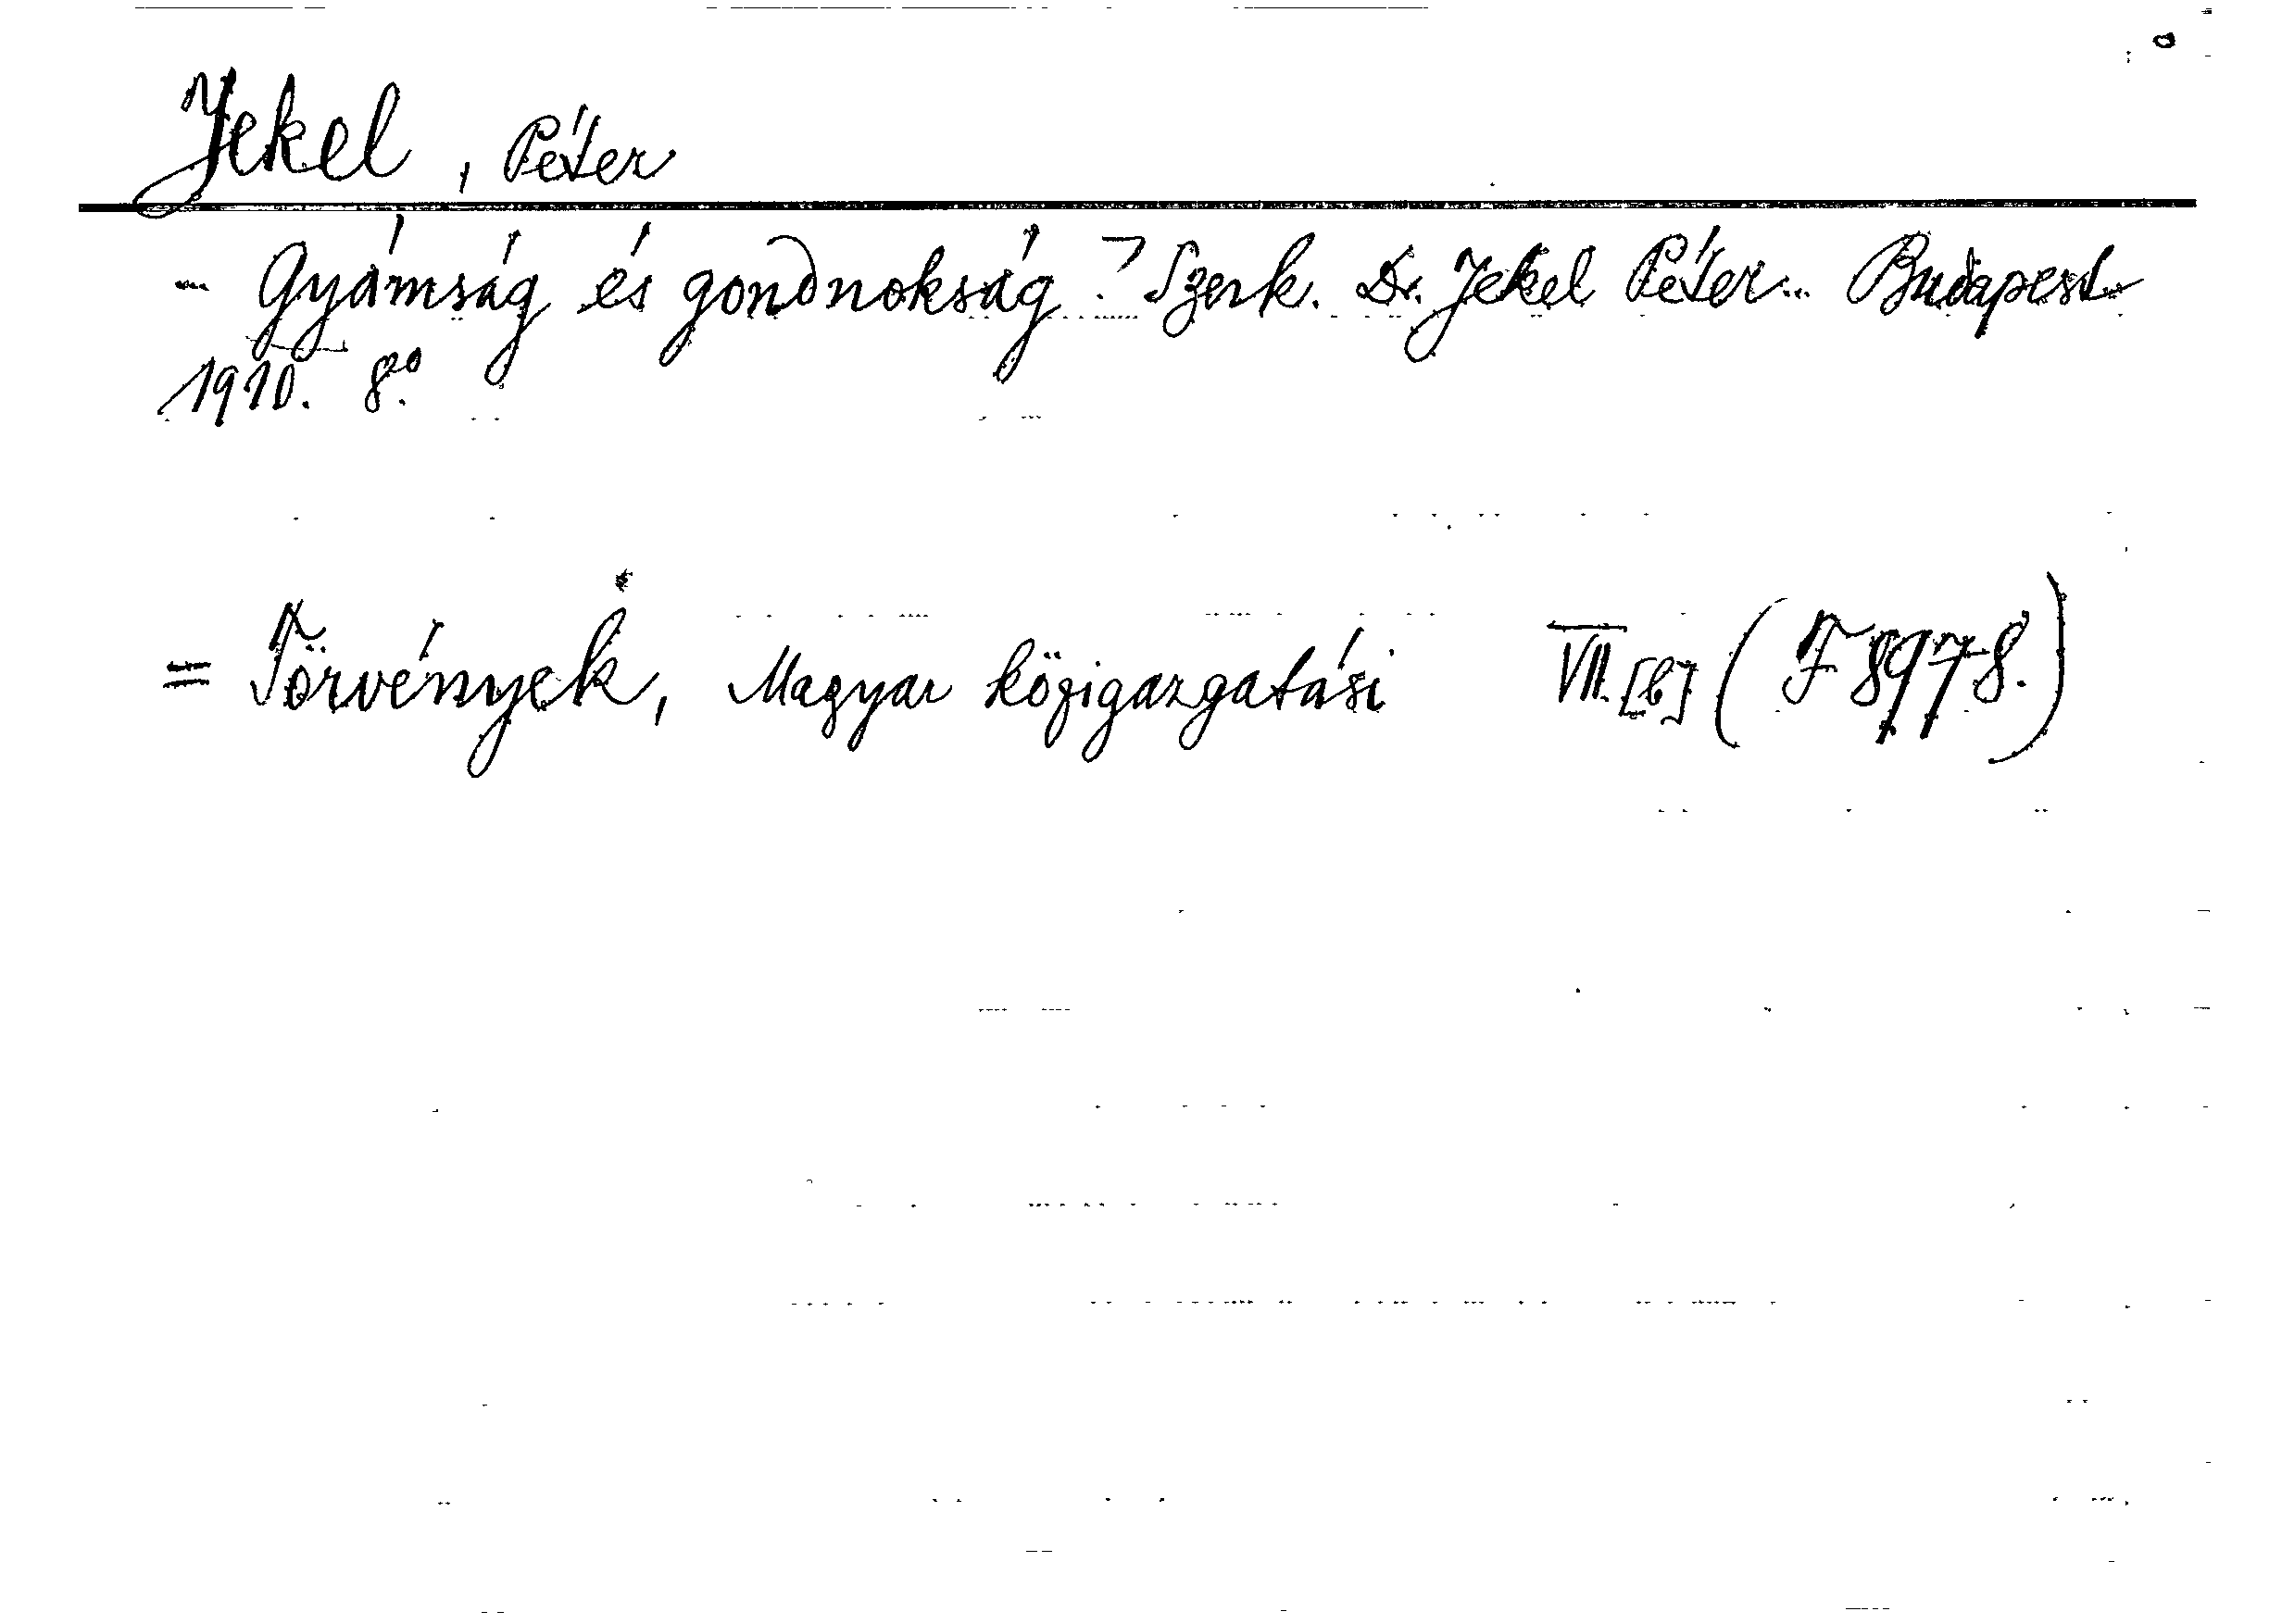 Jekel, Péter
– Gyámság és gondnokság. Szerk. Dr. Jekel Péter... Budapest
1910. 8°.
= Törvények, Magyar közigazgatási VII. [b] (F 8978.)